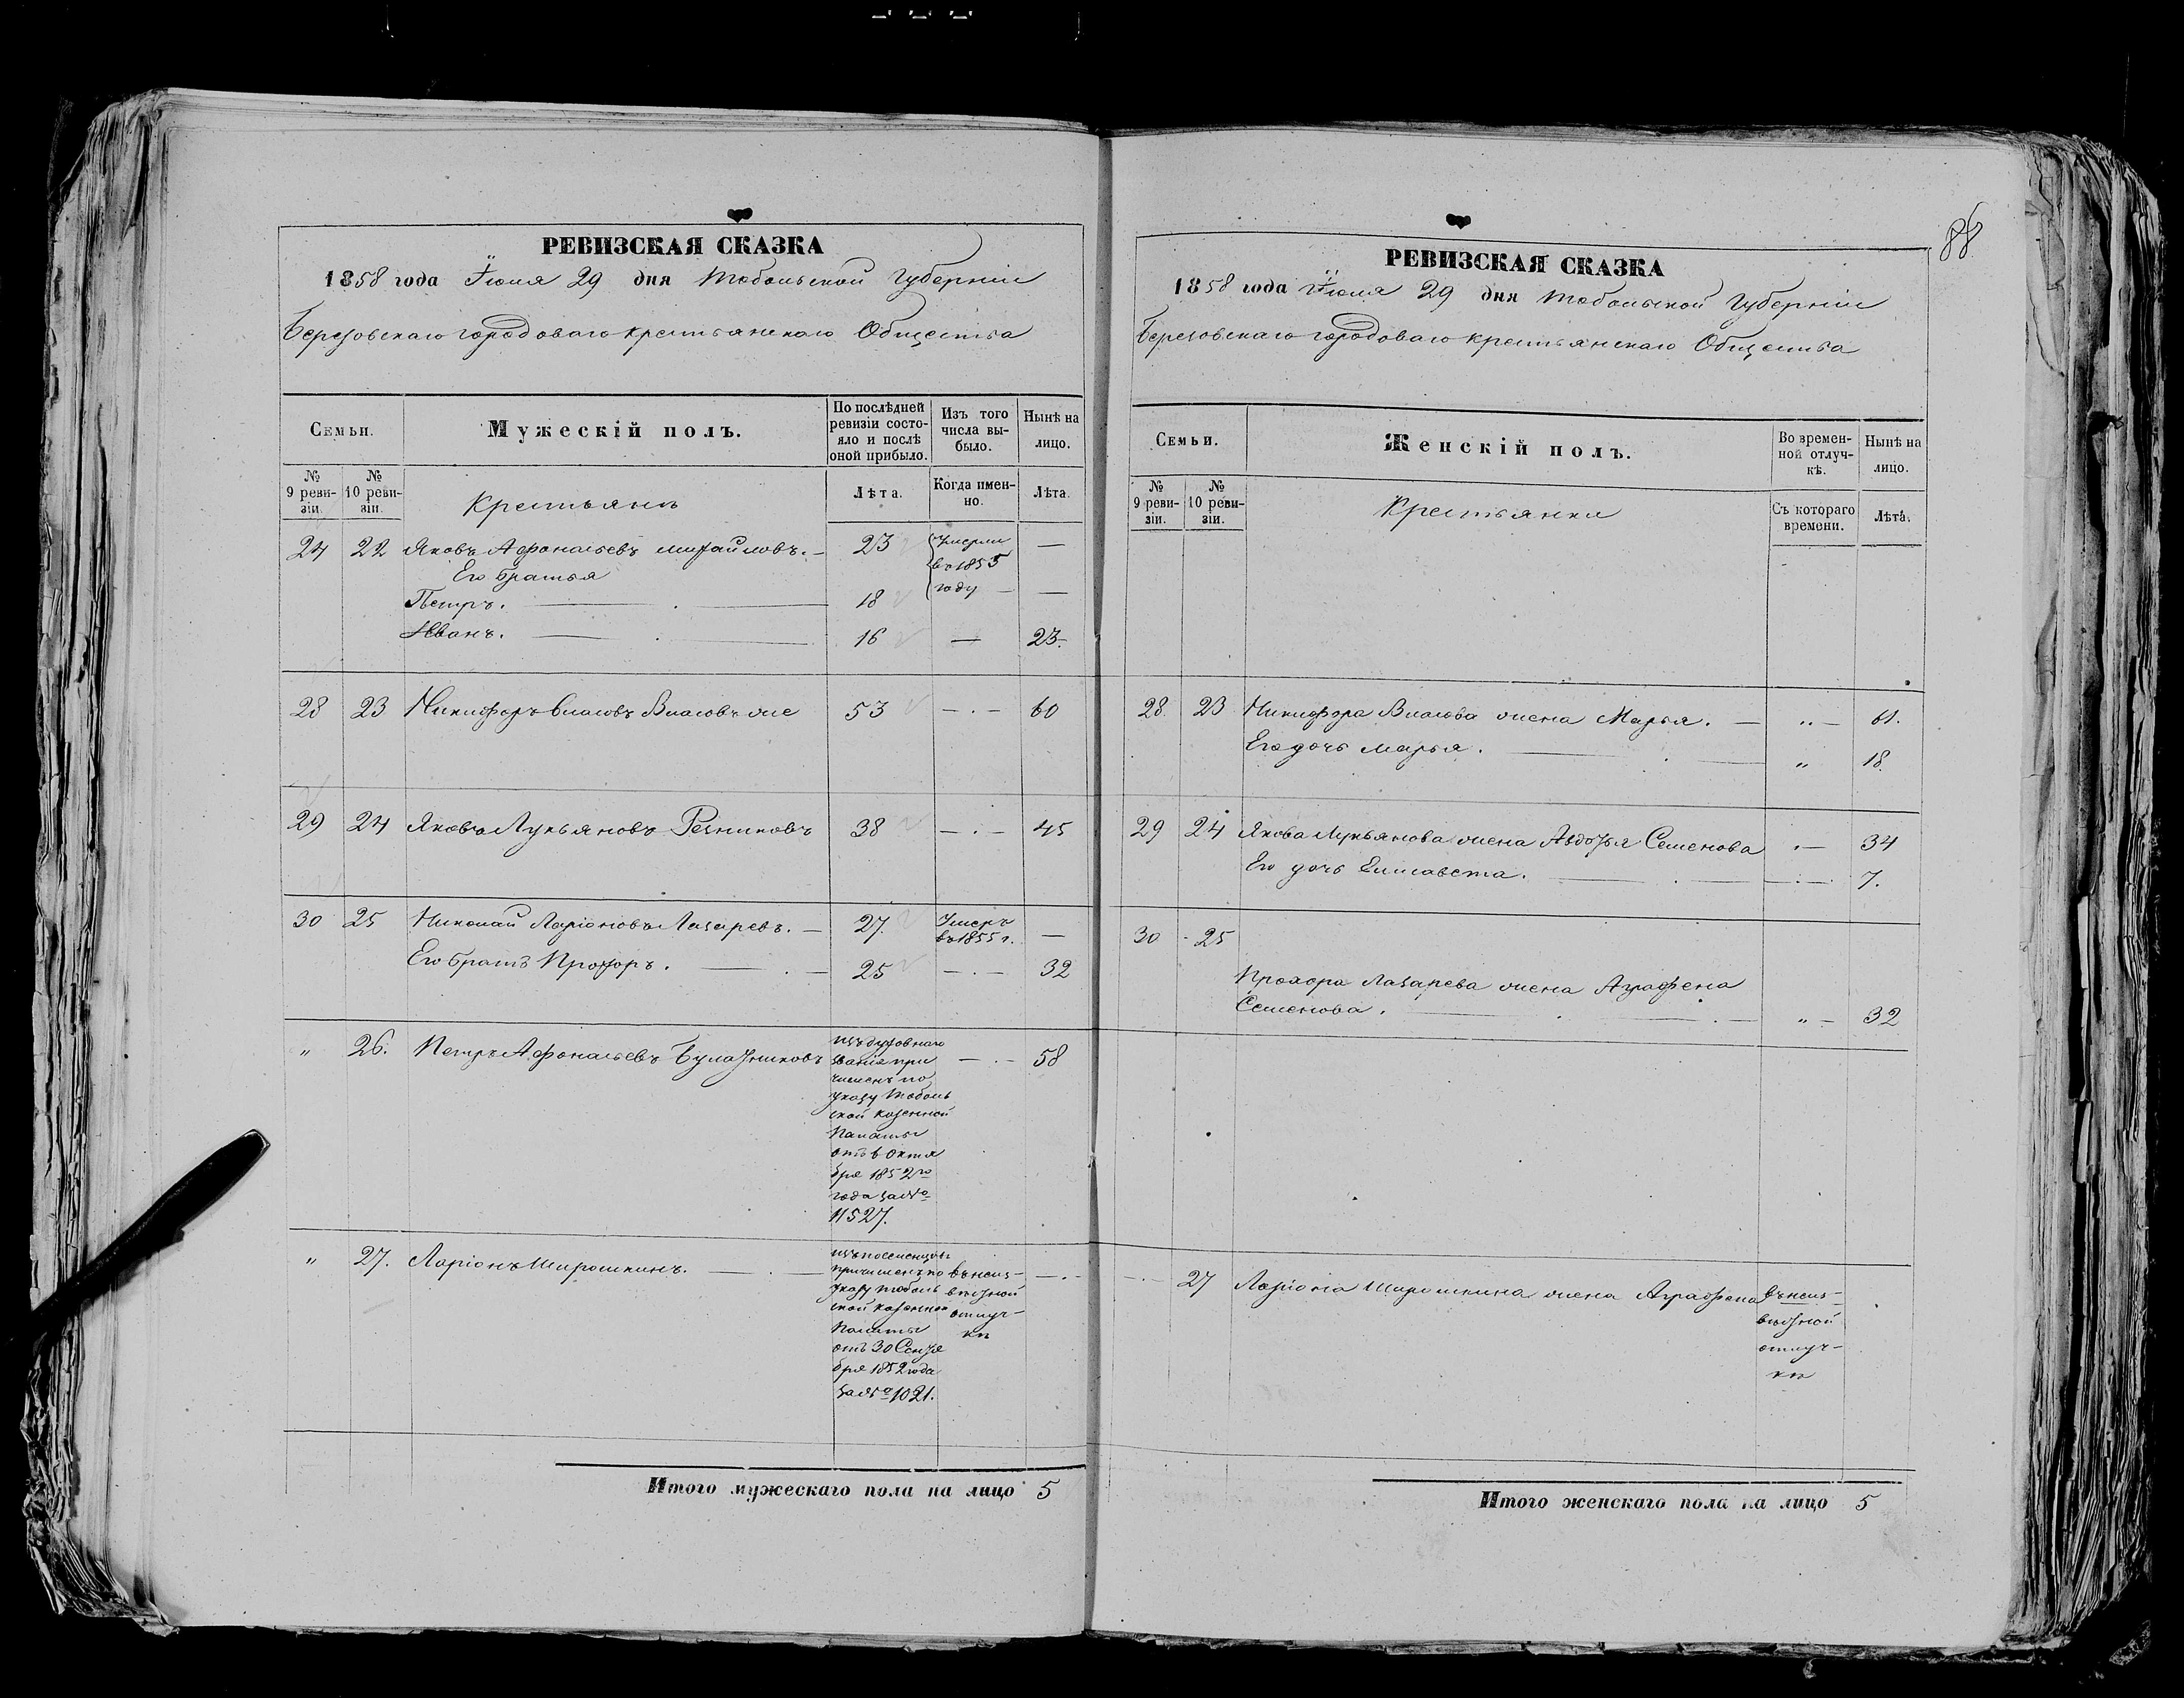 РЕВИЗСКАЯ СКАЗКА
1858 года Іюня 29 дня Тобольской Губерніи
Березовскаго городоваго крестьянскаго Общества
Семьи.
Мужескій полъ.
По послѣдней ревизіи состояло и послѣ оной прибыло.
Изъ того числа выбыло.
Нынѣ на лицо.
№ 9 ревизіи.
№ 10 ревизіи.
Крестьянъ
Лѣта.
Когда именно.
Лѣта.
24 22 Яковъ Афонасьевъ Михайловъ. — 23 Умерли —
Его братья въ 1855
Петръ. — 18 году —
Иванъ. — 16 — 23.
28 23 Никифоръ Власовъ Власовъ же 53 — 60
29 24 Яковъ Лукьяновъ Резниковъ 38 — 45
30 25 Николай Ларіоновъ Лазаревъ. — 27. Умеръ въ 1855 г. —
Его братъ Прохоръ. — 25 — 32
„ 26. Петръ Афонасьевъ Булашниковъ — 58
изъ духовнаго
званія при
численъ по
указу Тоболь
ской казенной
Палаты
отъ 6 Октя
бря 1852го
года за №
11527.
„ 27. Ларіонъ Широшкинъ. —
изъ поселенцовъ
причисленъ по
указу Тоболь
ской казенной
Палаты
отъ 30 Сентя
бря 1852 года
за № 1021.
въ неиз-
вѣстной
отлуч-
кѣ
Итого мужескаго пола на лицо 5
88
РЕВИЗСКАЯ СКАЗКА
1858 года Іюня 29 дня Тобольской Губерніи
Березовскаго городоваго крестьянскаго Общества
Семьи.
Женскій полъ.
Во временной отлучкѣ.
Нынѣ на лицо.
№ 9 ревизіи.
№ 10 ревизіи.
Крестьянки
Съ котораго времени.
Лѣта.
28 23 Никифора Власова жена Марья. — „ — 61.
Его дочь Марья. — „ 18.
29 24 Якова Лукьянова жена Авдотья Семенова — 34
Его дочь Елисавета. — 7.
30 25
Прохора Лазарева жена Аграфена
Семенова. — „ — 32
27 Ларіона Широшкина жена Аграфена
въ неиз-
вѣстной
отлуч-
кѣ
Итого женскаго пола на лицо 5